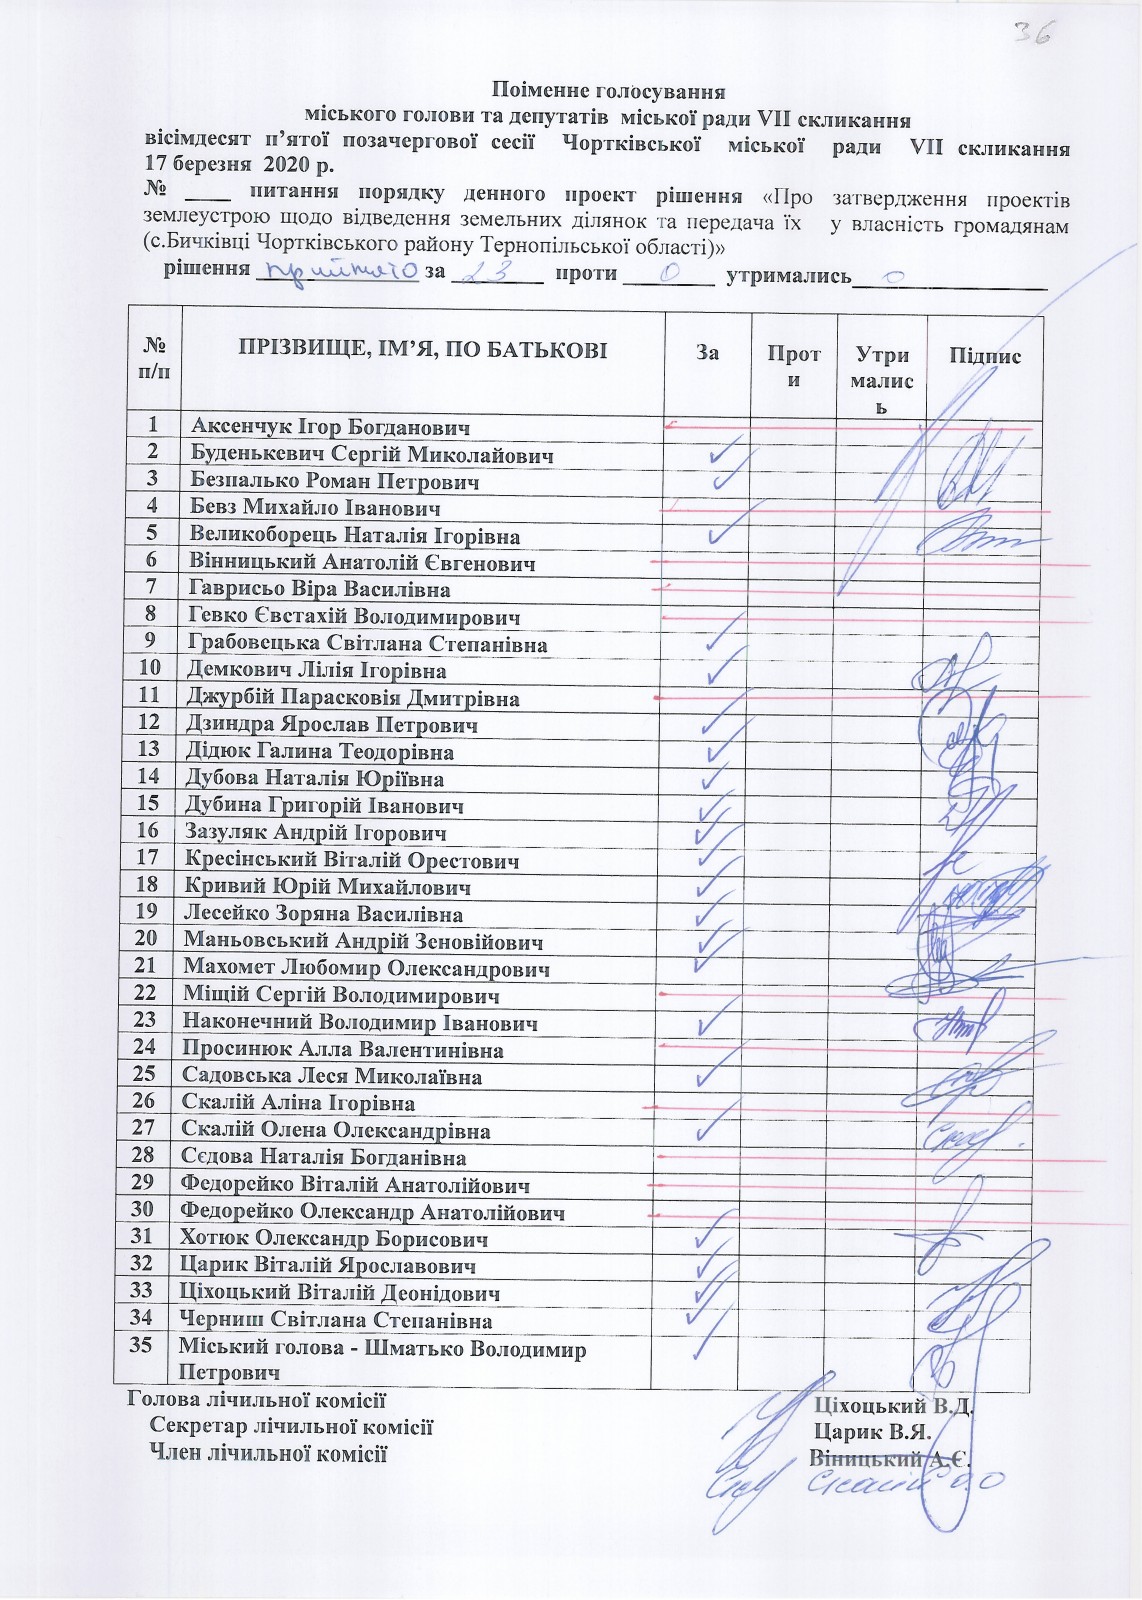 36
Поіменне голосування
міського голови та депутатів міської ради VII скликання
вісімдесят п’ятої позачергової сесії Чортківської міської ради VII скликання
17 березня 2020 р.
№ ____ питання порядку денного проект рішення «Про затвердження проектів
землеустрою щодо відведення земельних ділянок та передача їх у власність громадянам
(с.Бичківці Чортківського району Тернопільської області)»
рішення прийнято за 23 проти 0 утримались 0
№ п/п ПРІЗВИЩЕ, ІМ’Я, ПО БАТЬКОВІ За Проти Утримались Підпис
1 Аксенчук Ігор Богданович
2 Буденькевич Сергій Миколайович ✓
3 Безпалько Роман Петрович ✓
4 Бевз Михайло Іванович
5 Великоборець Наталія Ігорівна ✓
6 Вінницький Анатолій Євгенович
7 Гаврисьо Віра Василівна
8 Гевко Євстахій Володимирович
9 Грабовецька Світлана Степанівна ✓
10 Демкович Лілія Ігорівна ✓
11 Джурбій Парасковія Дмитрівна
12 Дзиндра Ярослав Петрович ✓
13 Дідюк Галина Теодорівна ✓
14 Дубова Наталія Юріївна ✓
15 Дубина Григорій Іванович ✓
16 Зазуляк Андрій Ігорович ✓
17 Кресінський Віталій Орестович ✓
18 Кривий Юрій Михайлович ✓
19 Лесейко Зоряна Василівна ✓
20 Маньовський Андрій Зеновійович ✓
21 Махомет Любомир Олександрович ✓
22 Міщій Сергій Володимирович
23 Наконечний Володимир Іванович ✓
24 Просинюк Алла Валентинівна
25 Садовська Леся Миколаївна ✓
26 Скалій Аліна Ігорівна
27 Скалій Олена Олександрівна ✓
28 Сєдова Наталія Богданівна
29 Федорейко Віталій Анатолійович
30 Федорейко Олександр Анатолійович
31 Хотюк Олександр Борисович ✓
32 Царик Віталій Ярославович ✓
33 Ціхоцький Віталій Деонідович ✓
34 Черниш Світлана Степанівна ✓
35 Міський голова - Шматько Володимир ✓
Петрович
Голова лічильної комісії Ціхоцький В.Д.
Секретар лічильної комісії Царик В.Я.
Член лічильної комісії Віницький А.Є.
Скалій О.О